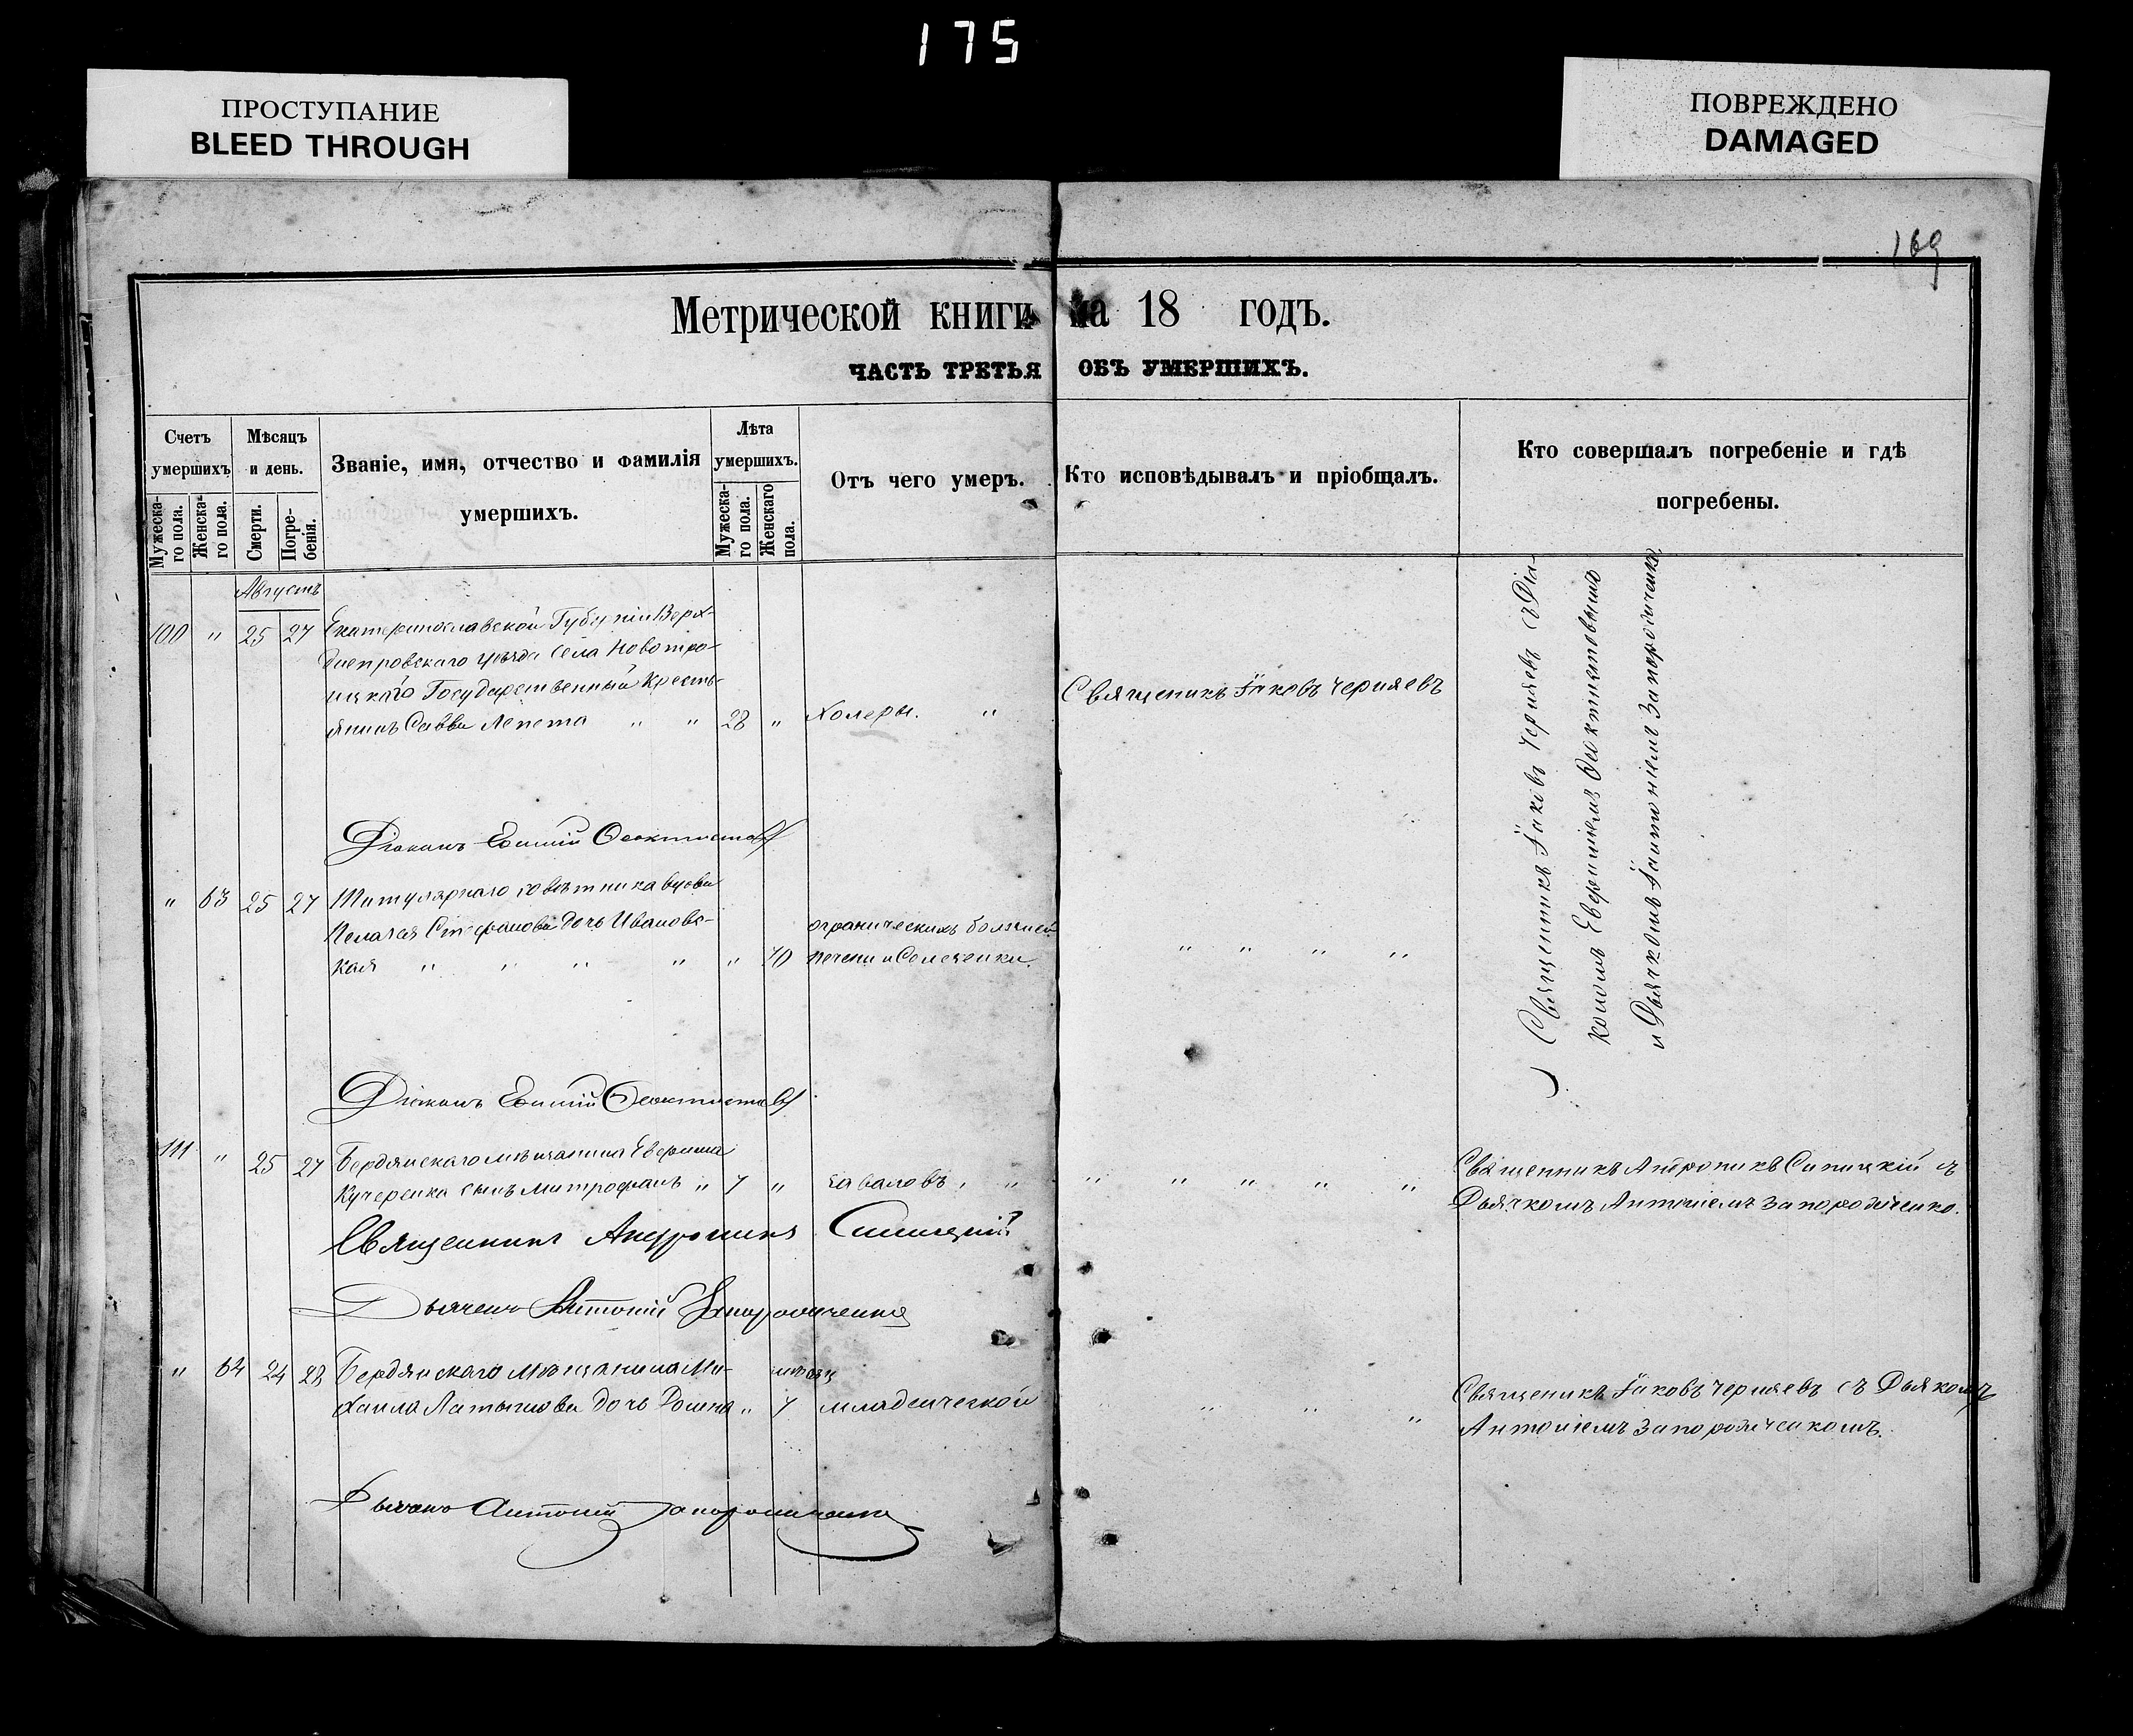 175
ПРОСТУПАНИЕ
BLEED THROUGH
ПОВРЕЖДЕНО
DAMAGED
169
Метрической книги на 18 годъ.
ЧАСТЬ ТРЕТЬЯ ОБЪ УМЕРШИХЪ.
Счетъ умершихъ
Мужеска-го пола.
Женска-го пола.
Мѣсяцъ и день.
Смерти.
Погре-бенія.
Званіе, имя, отчество и фамилія
умершихъ.
Лѣта умершихъ.
Мужеска-го пола.
Женскаго пола.
Отъ чего умеръ.
Кто исповѣдывалъ и пріобщалъ.
Кто совершалъ погребеніе и гдѣ
погребены.
Августъ
100 " 25 27 Екатеринославской Губерніи Верх-
днепровскаго уѣзда села Новотро-
ицкаго Государственный Кресть-
янинъ Савва Лепета " " 28 " Холеры. "
Священикъ Іаковъ Черняевъ
Священникъ Іаковъ Черняевъ съ Діа-
кономъ Евфиміемъ Феоктистовымъ
и Дьячкомъ Антоніемъ Запорожченко
Діаконъ Евфимій Феоктистовъ
" 63 25 27 Титулярнаго совѣтника вдова
Пелагея Стефанова дочь Ивановс-
кая " " " " " 70 органическихъ болѣзней
печени и Селезенки.
" " " "
Діаконъ Евфимій Феоктистовъ
111 " 25 27 Бердянскаго мѣщанина
Кучеренка сынъ Митрофанъ " 7 "
" " " " "
Священникъ Андроникъ Синицкій съ
Дьячкомъ Антоніемъ Запорожченко.
Священникъ Андроникъ Синицкій
Дьячекъ Антоній Запорожченко
" 64 24 28 Бердянскаго мѣщанина Ми-
хаила Латышова дочь " 7 младенческой
мѣсяц
" " " "
Священикъ Іаковъ Черняевъ съ Дьякомъ
Антоніемъ Запорожченкомъ.
Дьячекъ Антоній Запорожченко